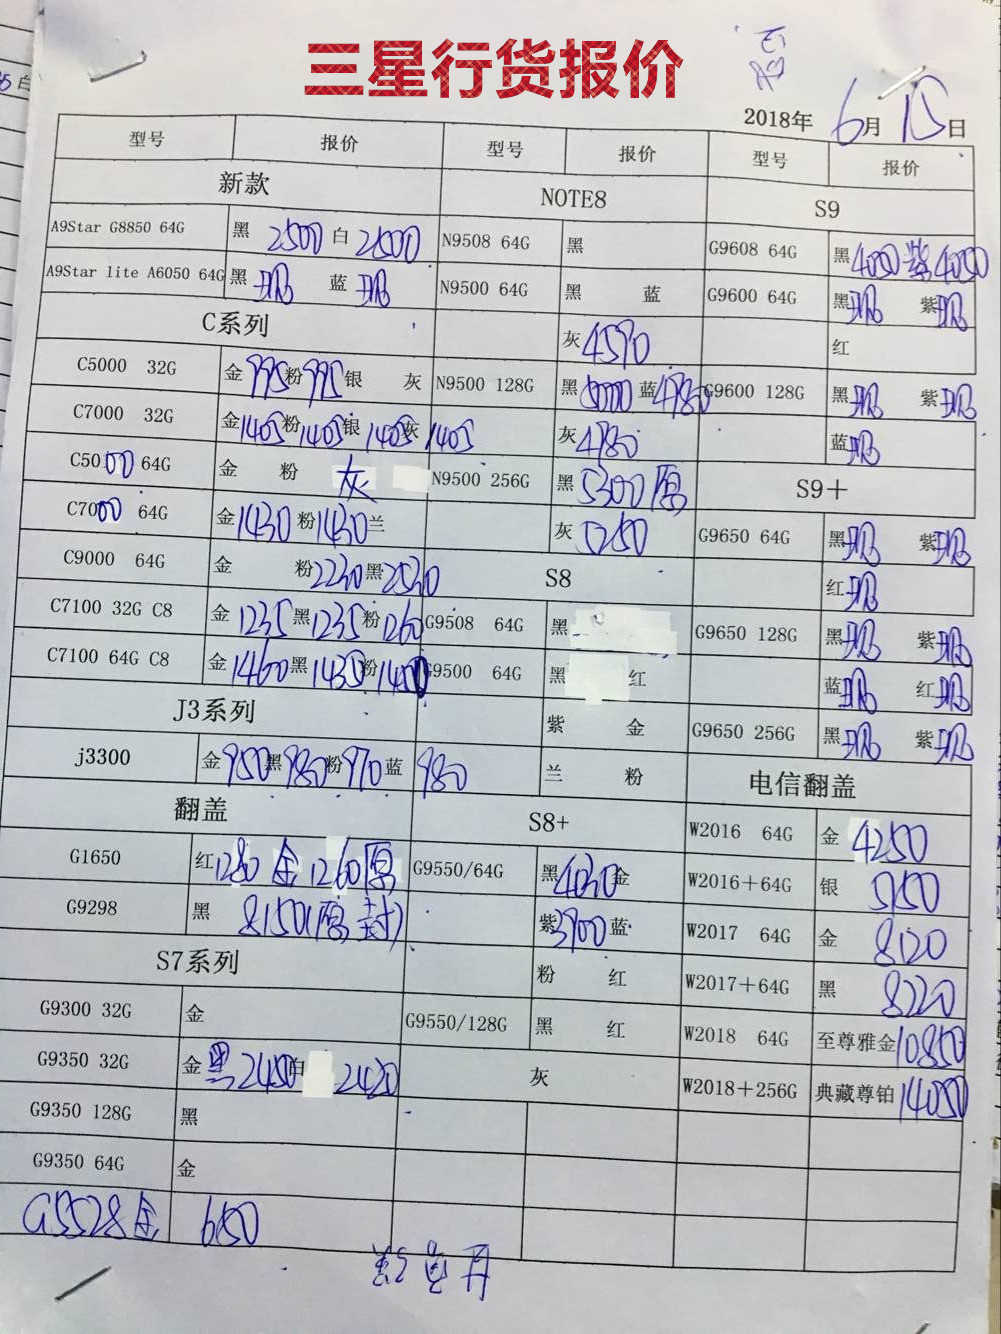 三星行货报价
2018年 6月 15日
型号 报价 型号 报价 型号 报价
新款 NOTE8 S9
A9Star G8850 64G 黑 2500 白 2500 N9508 64G 黑 G9608 64G 黑 4050 紫 4050
A9Star lite A6050 64G 黑 现 蓝 现 N9500 64G 黑 蓝 G9600 64G 黑 现 紫 现
C系列 灰 4590 红
C5000 32G 金 995 粉 995 银 灰 N9500 128G 黑 5000 蓝 4780 G9600 128G 黑 现 紫 现
C7000 32G 金 1405 粉 1405 银 1405 灰 1405 灰 4780 蓝 现
C5000 64G 金 粉 灰 N9500 256G 黑 5300 原 S9+
C7000 64G 金 1430 粉 1430 兰 灰 5250 G9650 64G 黑 现 紫 现
C9000 64G 金 粉 2230 黑 2530 S8 红 现
C7100 32G C8 金 1235 黑 1235 粉 1260 G9508 64G 黑 G9650 128G 黑 现 紫 现
C7100 64G C8 金 1460 黑 1430 粉 G9500 64G 黑 红 蓝 现 红 现
J3系列 紫 金 G9650 256G 黑 现 紫 现
j3300 金 950 黑 980 粉 970 蓝 980 兰 粉 电信翻盖
翻盖 S8+ W2016 64G 金 4250
G1650 红 1280 金 1260 原 G9550/64G 黑 4030 金 W2016+64G 银 5150
G9298 黑 8150(原封) 紫 3900 蓝 W2017 64G 金 8120
S7系列 粉 红 W2017+64G 黑 8220
G9300 32G 金 G9550/128G 黑 红 W2018 64G 至尊雅金 10850
G9350 32G 金 黑 2450 白 2420 灰 W2018+256G 典藏尊铂 14050
G9350 128G 黑
G9350 64G 金
G5528 金 650